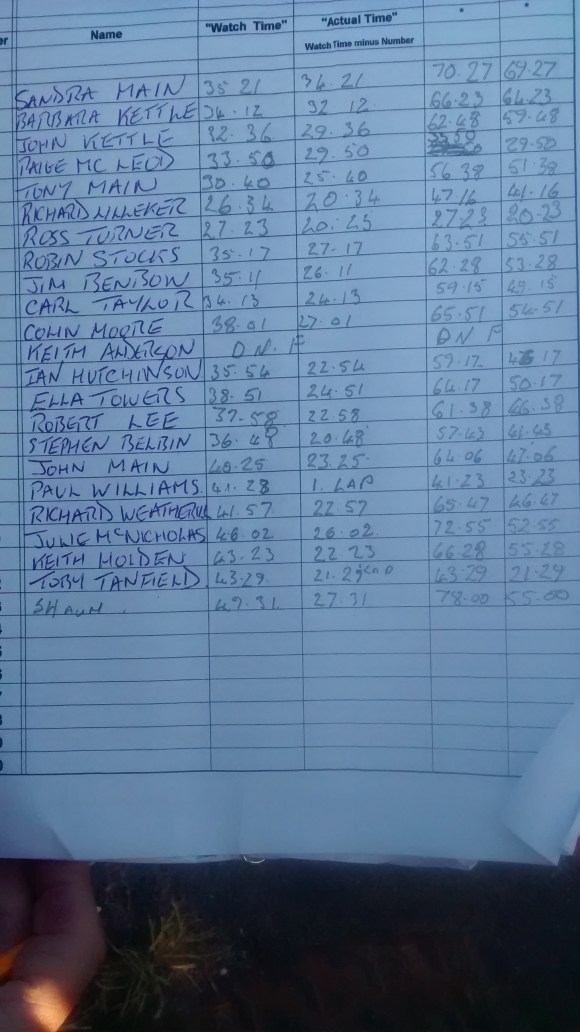 er Name "Watch Time" "Actual Time" * *
Watch Time minus Number
SANDRA MAIN 35 21 34 21 70.27 69.27
BARBARA KETTLE 34.12 32 12 66.23 64.23
JOHN KETTLE 32.36 29.36 62.48 59.48
PAIGE MC LEOD 33.50 29.50 29.50
TONY MAIN 30.40 25.40 56 38 51.38
RICHARD LILLEKER 26.34 20.34 47.16 41.16
ROSS TURNER 27.23 20.23 27.23 20.23
ROBIN STOCKS 35.17 27.17 63.51 55.51
JIM BENBOW 35.11 26.11 62.28 53.28
CARL TAYLOR 34.13 24.13 59.15 49.15
COLIN MOORE 38.01 27.01 65.51 54.51
KEITH ANDERSON D N.F D N F
IAN HUTCHINSON 35.54 22.54 59.17 17
ELLA TOWERS 38.51 24.51 64.17 50.17
ROBERT LEE 37.58 22 58 61.38 46.38
STEPHEN BELBIN 36.48 20.48 57.43 41.43
JOHN MAIN 40.25 23.25 64 06 47.06
PAUL WILLIAMS 41.23 1. LAP 41.23 23.23
RICHARD 41.57 22.57 65.47 46.47
JULIE MCNICHOLAS 46.02 26.02 72.55 52.55
KEITH HOLDEN 43.23 22 23 66.28 55.28
TOBY TANFIELD 43.29 21.29 43.29 21.29
SHAUN 49.31 27.31 78.00 55.00